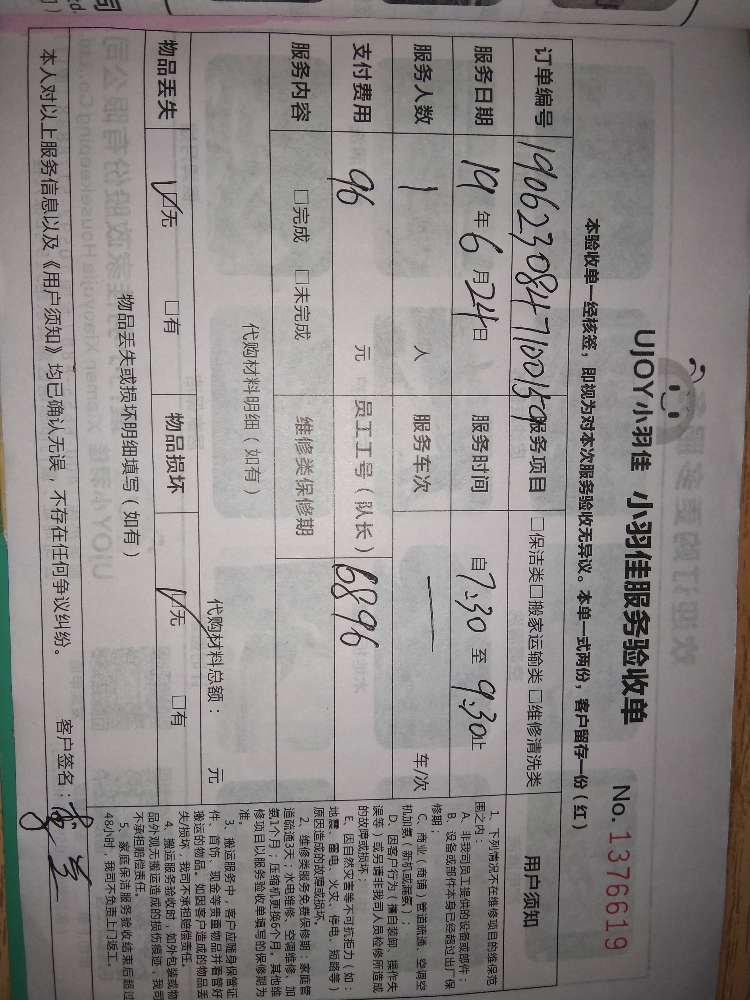 UJOY小羽佳 小羽佳服务验收单 No. 1376619
本验收单一经核签，即视为对本次服务验收无异议。本单一式两份，客户留存一份（红）
订单编号 190623084710015 服务项目 □保洁类□搬家运输类□维修清洗类
服务日期 19年6月24日 服务时间 自7:30至9:30止
服务人数 1 人 服务车次 — 车/次
支付费用 96 元 员工工号（队长） 6896
服务内容 □完成 □未完成 维修类保修期
代购材料明细（如有）
代购材料总额： 元
物品丢失 ☑无 □有 物品损坏 ☑无 □有
物品丢失或损坏明细填写（如有）
本人对以上服务信息以及《用户须知》均已确认无误，不存在任何争议纠纷。 客户签名：
用户须知
1、下列情况不在维修项目的维保范
围之内：
A、非我司员工提供的设备或部件；
B、设备或部件本身已经超过出厂保
修期；
C、商业（商铺）管道疏通、空调空
机加氨（新机或漏氨）；
D、因客户行为（擅自装卸、操作失
误等）或另请非我司人员检修所造成
的故障或损坏。
E、因自然灾害等不可抗拒力（如：
地震、雷电、火灾、停电、短路等）
原因造成的故障或损坏。
2、维修类服务免费保修期：家庭管
道疏通3天；水电维修、空调维修、加
氨1个月；压缩机更换6个月。其他维
修项目以服务验收单填写的保修期为
准。
3、搬运服务中，客户应随身保管证
件、首饰、现金等贵重物品并看管好
搬运的物品。如因客户造成的物品丢
失/损坏，我司不承担赔偿责任。
4、搬运服务验收时，如外包装或物
品外观无搬运造成的损伤痕迹，我司
不承担赔偿责任。
5、家庭保洁服务验收结束后超过
48小时，我司不负责上门返工。